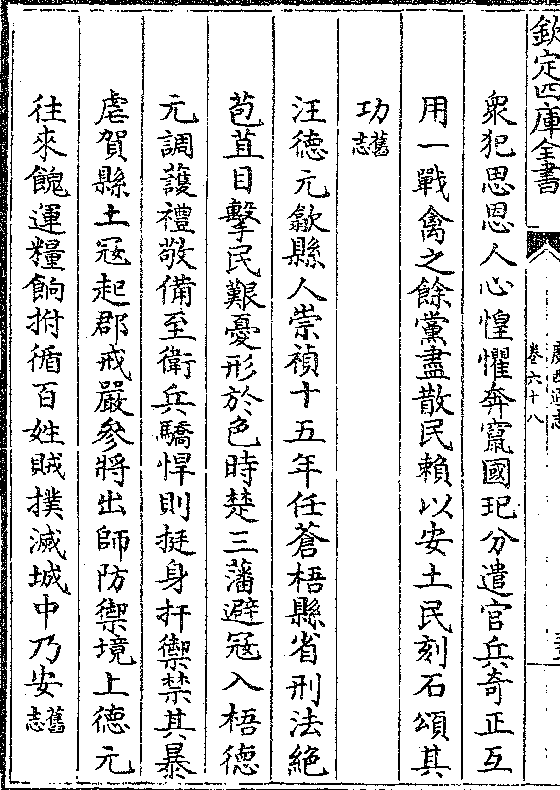 欽定四庫全書
卷六十八
衆犯思恩人心惶懼奔竄國玘分遣官兵奇正互
用一戰禽之餘黨盡散民賴以安土民刻石頌其
功舊志
汪德元歙縣人崇禎十五年任蒼梧縣省刑法絕
苞苴目擊民艱憂形於色時楚三藩避冦入梧德
元調護禮敬備至衛兵驕悍則挺身扞禦禁其暴
虐賀縣土冦起郡戒嚴參將出師防禦境上德元
往來餽運糧餉拊循百姓賊撲滅城中乃安舊志